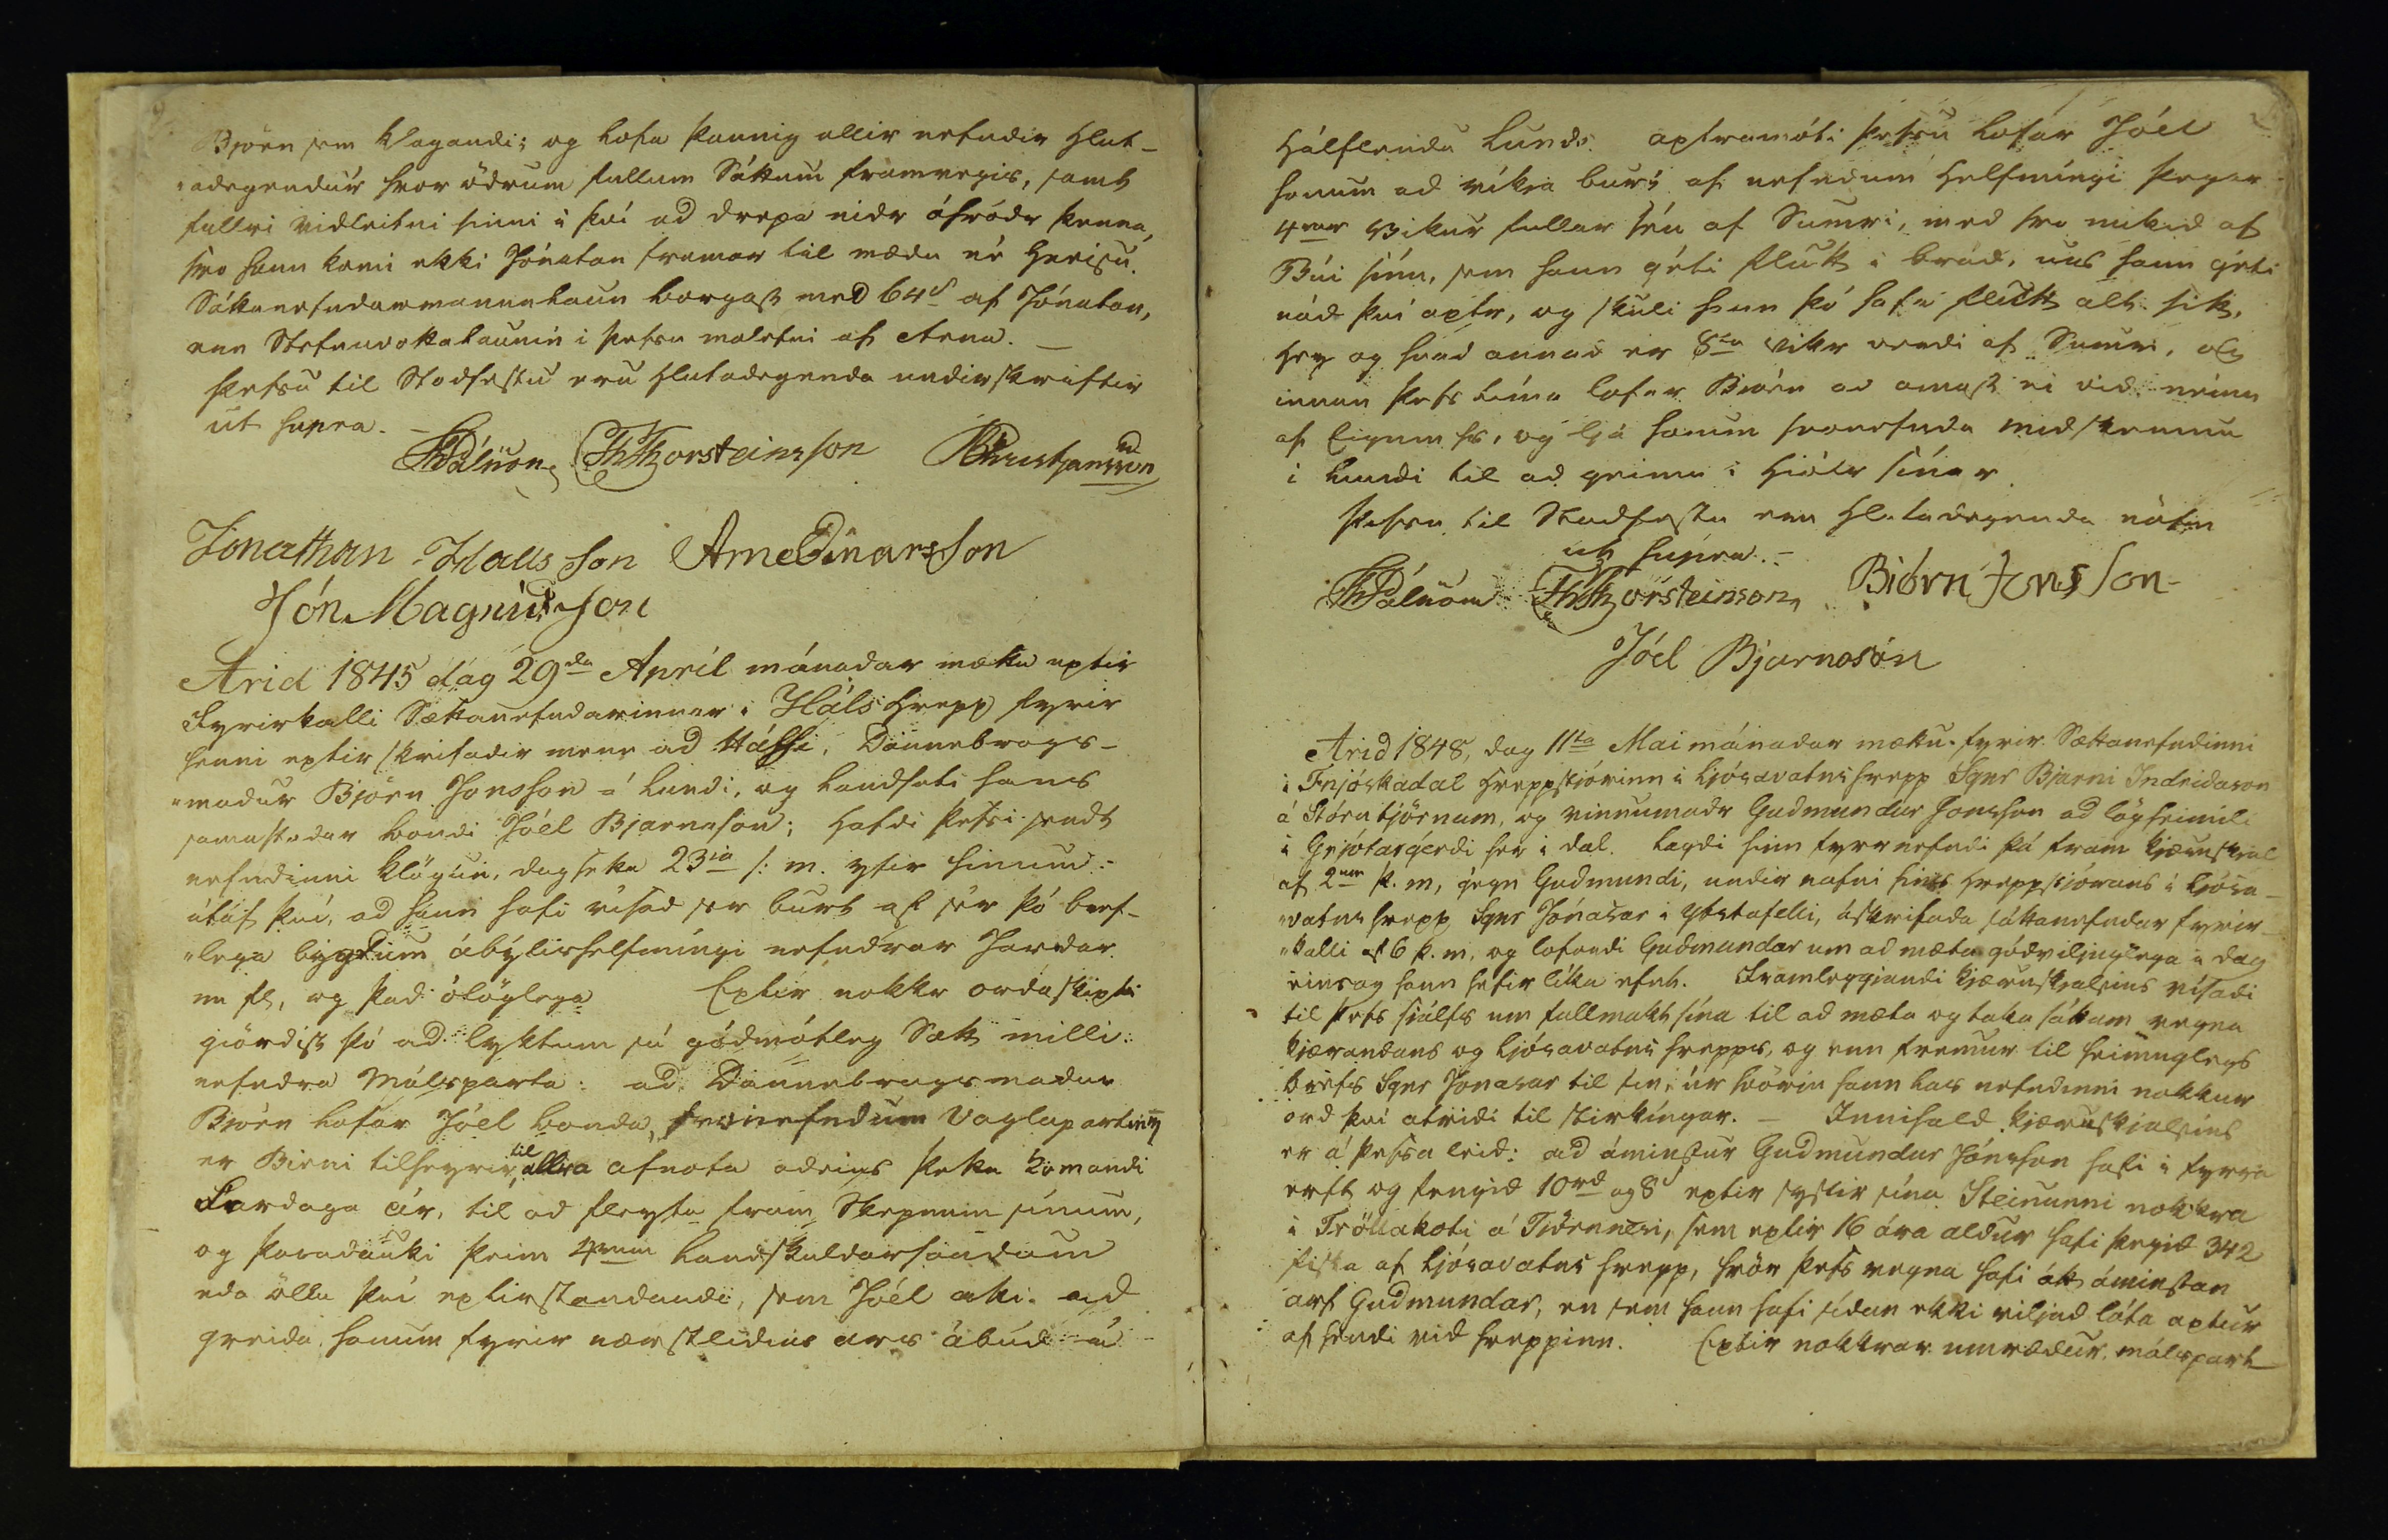 Björn sem Klagandi; og lofa þannig allir nefndir Hlut-
"adegendur hvor ödrum fullum Sáttum framvegis, samt
fullri vidleitni sinni i því ad drepa nidr óhródr þenna,
svo hann komi ekki Jónatan framar til mædu né Hneisu.
Sáttanefndarmannalaun borgast med 64s af Jónatan,
enn Stefnuvottalaunin i þessu malefni af Arna. —
þessu til Stadfestu eru Hlutadegenda undirskriftir
ut supra. —
ThPálsson ThThorsteinsson BKristjansson
Jonathan Halls son Arne Einarsson
Jón Magnússon
Arid 1845 dag 29da Apríl mánadar mættu eptir
Fyrirkalli Sættanefndarinnar i Háls Hrepp fyrir
henni eptirskrifadir menn ad Hálsi, Dannebrogs-
"madur Björn Jonsson á Lundi, og landseti hans
samastadar bondi Jóel Bjarnason; Hafdi þessi sendt
nefndinni klögun, dagsetta 23ia s: m. yfir hinum
útaf því, ad hann hafi vísad ser burt af sér þó bref-
"lega bygdum ábýlishelfmíngi nefndrar Jardar
m fl, og þad ólöglega Eptir nokkr ordaskipti
giördist þó ad lyktum sú gódmótleg Sætt milli
nefndra Málsparta: ad Dannebrogsmadur
Björn lofar Jóel bonda, svonefndum Vaglapartinum
er Birni tilheyrir, til allra afnota adeins þetta komandi
Fardaga ár, til ad fleyta fram Skepnum sínum,
og þaradauki þeim 4rum Landskuldarsaudum
eda öllu því eptirstandandi, sem Jóel atti ad
greida honum fyrir næstlidins ars ábúd á
Hálflendu Lunds. aptramóti þessu lofar Jóel
honum ad víkja burt af nefndum Helfmíngi þegar
4rar Vikur fullar séu af Sumri, med svo mikid af
Búi sínu, sem hann géti flutt i brád, uns hann géti
nád því aptr, og skuli hann þó hafa flutt alt sitt,
Hey og hvad annad er 8ta Vikr verdi af Sumri, og
innan þess tíma lofar Björn ad amast ei vid neinu
af Eignum hs, og ljá honum svonefnda midskemmu
i Lundi til ad geima i Hirslr sínar
þessu til Stadfestu eru Hlutadegenda nöfn
ut supra. —
ThPálsson ThThorsteinson Biörn Jons Son
Jóel Bjarnason
Arid 1848, dag 11ta Mai mánadar mættu fyrir Sættanefndinni
i Fnjóskadal Hreppstjórinn i Ljósavatnshrepp Sgnr Bjarni Indridason
á Stórutjörnum, og vinnumadr Gudmundur Jonsson ad lögheimili
i Grjótárgérdi her i dal. Lagdi hinn fyrrnefndi þá fram kjæruskjal
af 2um þ. m, gegn Gudmundi, undir nafni hins Hreppstjórans i Ljósa-
"vatnshrepp Sgnr Jónasar i Ystafelli, áskrifada sáttanefndar fyrir-
"kalli af 6 þ. m, og lofordi Gudmundar um ad mæta gódviljuglega i dag
einsog hann hefir líka efnt. Framleggjandi kjæruskjalsins vísadi
til þess sjálfs um fullmakt sína til ad mæta og taka sáttum vegna
kjærandans og Ljósavatns hrepps, og enn fremur til heimuglegs
brefs Sgnr Jonasar til sin, úr hvörju hann las nefndinni nokkur
ord því atridi til stirkingar. — Innihald kjæruskjalsins
er á þessa leid: ad áminstur Gudmundur Jónsson hafi i fyrra
erft og fengid 10rd og 8s eptir systir sína Steinunni nokkra
i Tröllakoti á Tjörnnesi, sem eptir 16 ára aldur hafi þegid 342
fiska af Ljósavatns hrepp, hvör þess vegna hafi átt áminstan
arf Gudmundar, en sem hann hafi sídan ekki viljad láta aptur
af hendi vid hreppinn. Eptir nokkrar umrædur málspart